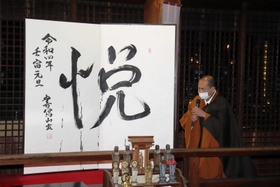 悦
令和四年
壬寅元旦